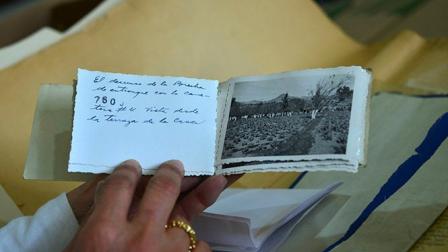 El descenso de la Parcela
de enfrente con la casa
760
tera #4. Vista desde
la terraza de la Casa